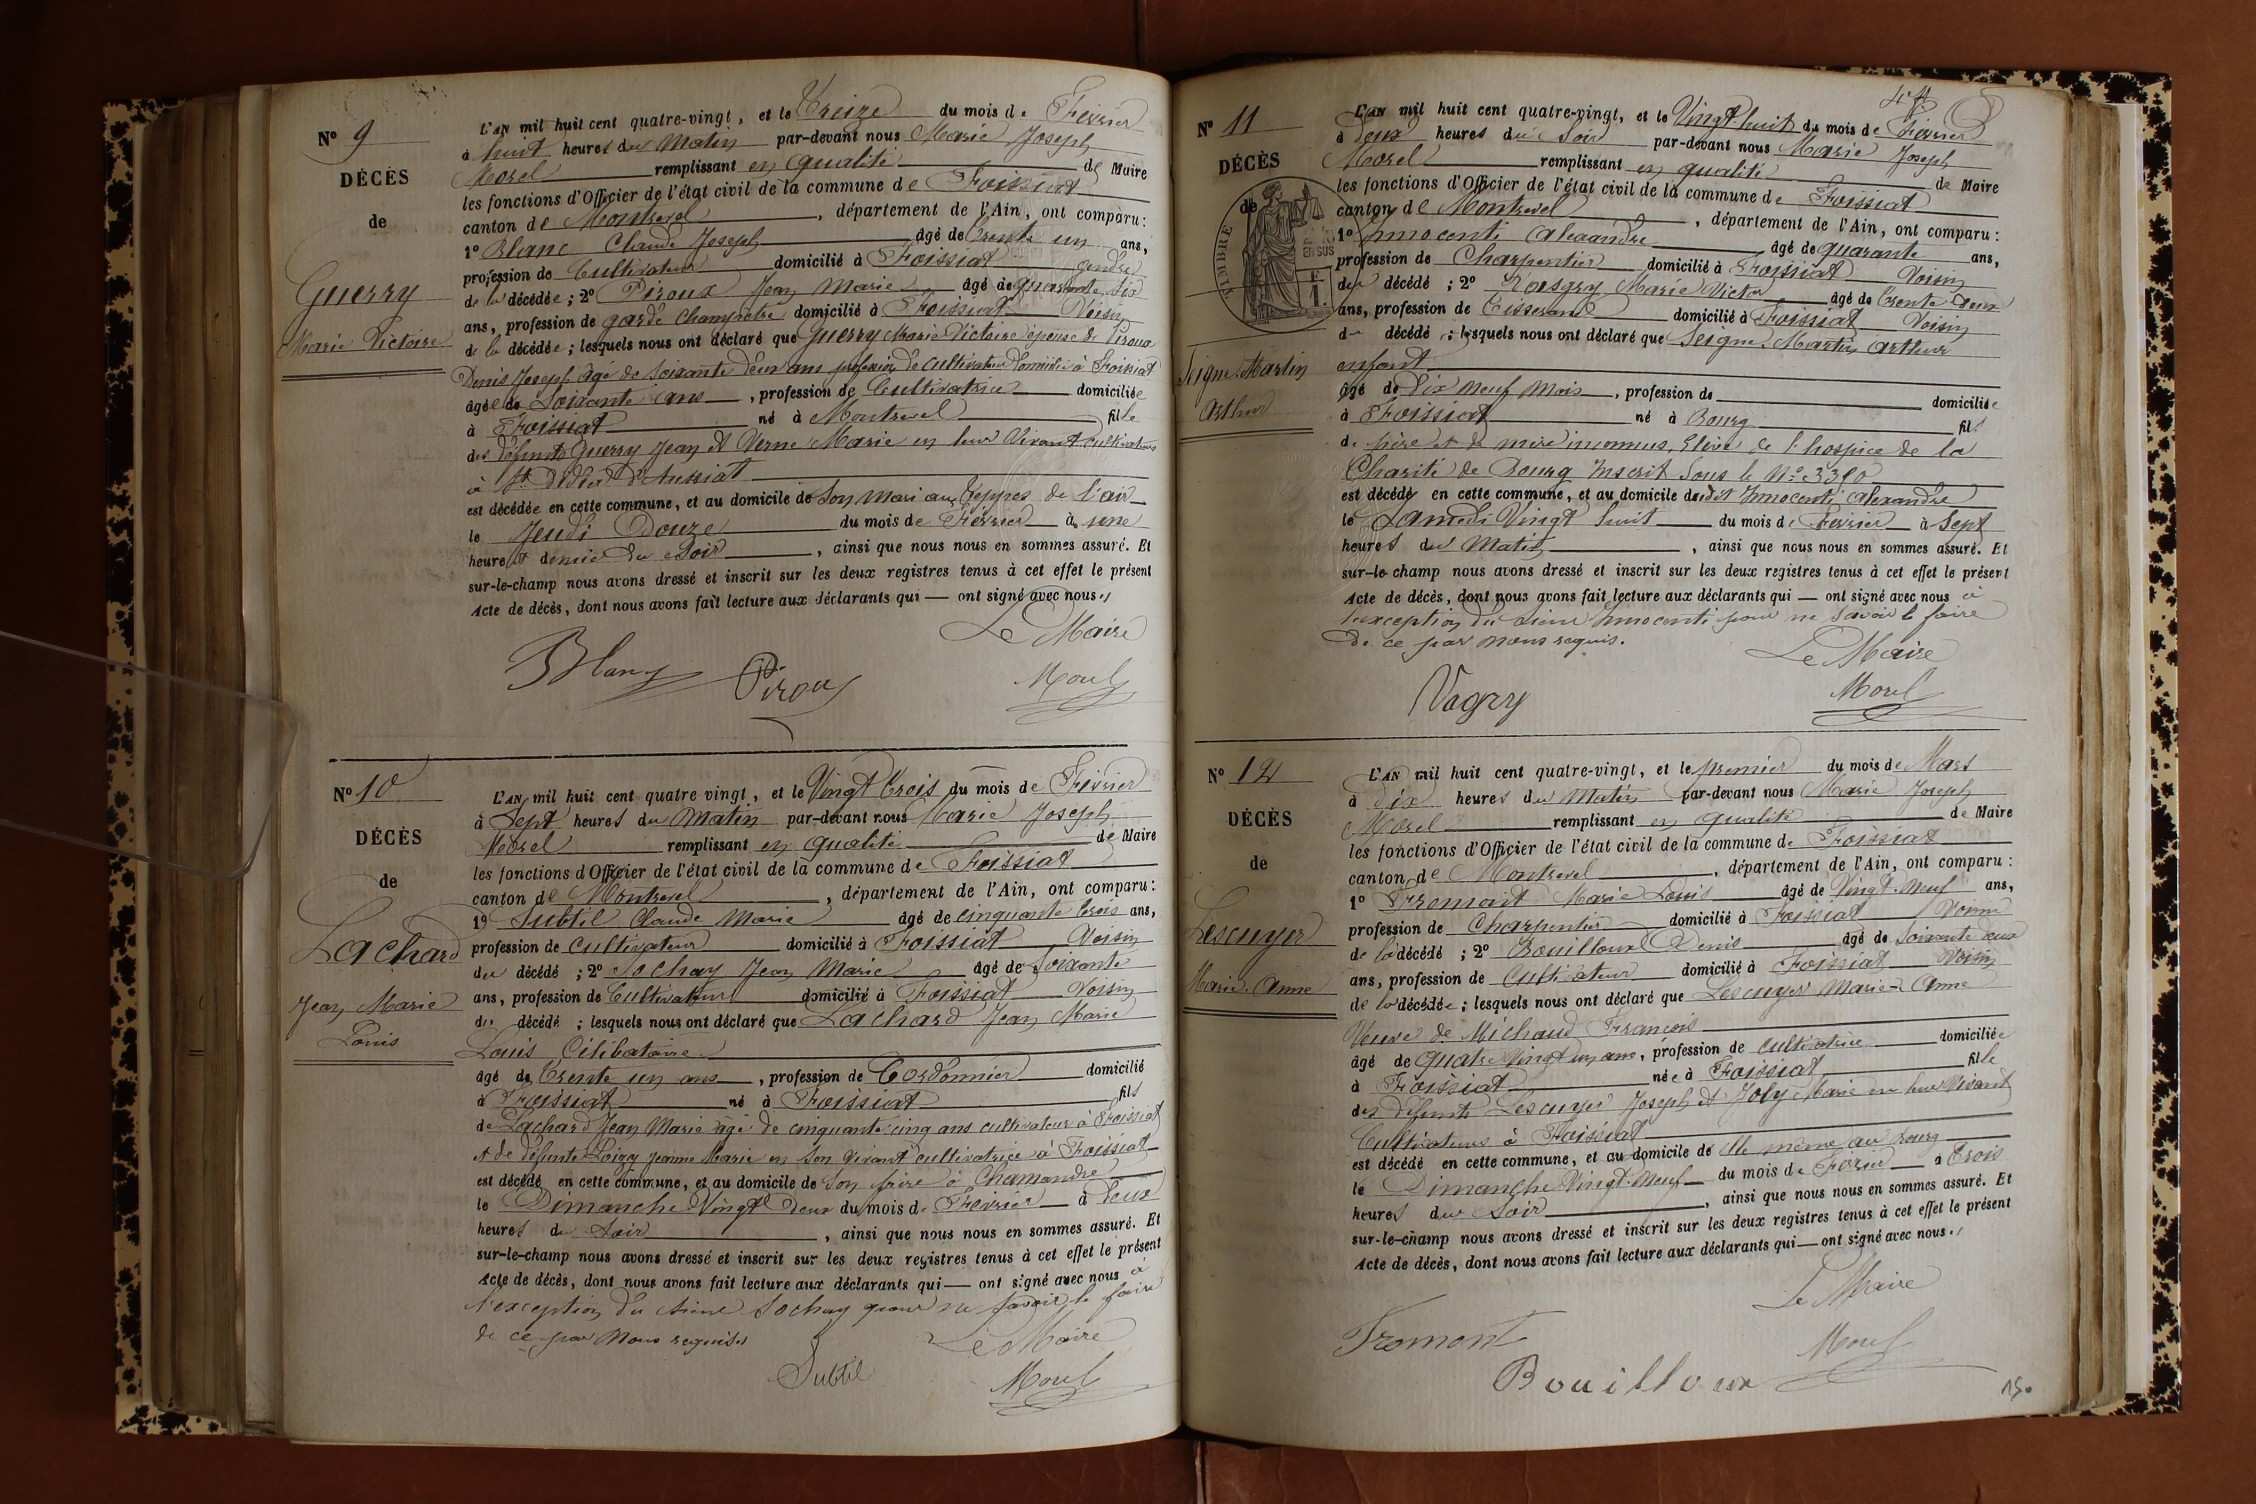 N° 9
DÉCÈS
de
Guerry
Marie Victoire
L'AN mil huit cent quatre-vingt, et le Treize du mois de Février
à huit heures du Matin par-devant nous Marie Joseph
Morel remplissant en qualité de Maire
les fonctions d'Officier de l'état civil de la commune de Foissiat
canton de Montrevel, département de l'Ain, ont comparu :
1° Blanc Claude Joseph âgé de Trente un ans,
profession de Cultivateur domicilié à Foissiat gendre
de la décédée ; 2° Piroux Jean Marie âgé de quarante six
ans, profession de garde champêtre domicilié à Foissiat Voisin
de la décédée ; lesquels nous ont déclaré que Guerry Marie Victoire épouse de Piroux
Denis Joseph âgé de Soixante deux ans profession de cultivateur domicilié à Foissiat
âgée de Soixante ans, profession de Cultivatrice domiciliée
à Foissiat né à Montrevel fille
des défunts Guerry Jean et Verne Marie en leur Vivant cultivateurs
à St Didier d'Aussiat
est décédée en cette commune, et au domicile de Son mari aux Teppes de l'air
le Jeudi Douze du mois de Février à une
heure et demie du Soir, ainsi que nous nous en sommes assuré. Et
sur-le-champ nous avons dressé et inscrit sur les deux registres tenus à cet effet le présent
Acte de décès, dont nous avons fait lecture aux déclarants qui — ont signé avec nous.
Le Maire
Blanc Piroux Morel
N° 10
DÉCÈS
de
Lachard
Jean Marie
Louis
L'AN mil huit cent quatre vingt, et le Vingt Trois du mois de Février
à Sept heures du Matin par-devant nous Marie Joseph
Morel remplissant en qualité de Maire
les fonctions d'Officier de l'état civil de la commune de Foissiat
canton de Montrevel, département de l'Ain, ont comparu :
1° Subtil Claude Marie âgé de cinquante trois ans,
profession de cultivateur domicilié à Foissiat Voisin
du décédé ; 2° Sochay Jean Marie âgé de Soixante
ans, profession de Cultivateur domicilié à Foissiat Voisin
du décédé ; lesquels nous ont déclaré que Lachard Jean Marie
Louis Célibataire
âgé de Trente un ans, profession de Cordonnier domicilié
à Foissiat né à Foissiat fils
de Lachard Jean Marie âgé de cinquante cinq ans cultivateur à Foissiat
et de défunte Jeanne Marie en son vivant cultivatrice à Foissiat
est décédé en cette commune, et au domicile de Son frère à Chamandre
le Dimanche Vingt deux du mois de Février à Deux
heures du Soir, ainsi que nous nous en sommes assuré. Et
sur-le-champ nous avons dressé et inscrit sur les deux registres tenus à cet effet le présent
Acte de décès, dont nous avons fait lecture aux déclarants qui — ont signé avec nous à
l'exception du sieur Sochay pour ne savoir le faire
de ce par nous requis
Le Maire
Subtil Morel
N° 11
DÉCÈS
de
TIMBRE
EN SUS
Seigne-Martin
Arthur
L'AN mil huit cent quatre-vingt, et le Vingt huit du mois de Février
à Deux heures du Soir par-devant nous Marie Joseph
Morel remplissant en qualité de Maire
les fonctions d'Officier de l'état civil de la commune de Foissiat
canton de Montrevel, département de l'Ain, ont comparu :
1° Innocenti Alexandre âgé de quarante ans,
profession de Charpentier domicilié à Foissiat Voisin
du décédé ; 2° Marie Victor âgé de trente deux
ans, profession de Tisserand domicilié à Foissiat Voisin
du décédé ; lesquels nous ont déclaré que Seigne-Martin Arthur
enfant
âgé de Dix Neuf Mois, profession de domicilié
à Foissiat né à Bourg fils
de père et de mère inconnus, Elève de l'hospice de la
Charité de Bourg Inscrit Sous le N° 3390
est décédé en cette commune, et au domicile dudit Innocenti Alexandre
le Samedi Vingt huit du mois de Février à Sept
heures du Matin, ainsi que nous nous en sommes assuré. Et
sur-le champ nous avons dressé et inscrit sur les deux registres tenus à cet effet le présent
Acte de décès, dont nous avons fait lecture aux déclarants qui — ont signé avec nous à
l'exception du sieur Innocenti pour ne savoir le faire
de ce par nous requis.
Le Maire
Vagry Morel
N° 12
DÉCÈS
de
Lescuyer
Marie-Anne
L'AN mil huit cent quatre-vingt, et le premier du mois de Mars
à Dix heures du Matin par-devant nous Marie Joseph
Morel remplissant en qualité de Maire
les fonctions d'Officier de l'état civil de la commune de Foissiat
canton de Montrevel, département de l'Ain, ont comparu :
1° Fromont Marie Louis âgé de Vingt-Neuf ans,
profession de Charpentier domicilié à Foissiat Voisin
de la décédé ; 2° Bouilloux Denis âgé de Soixante deux
ans, profession de Cultivateur domicilié à Foissiat Voisin
de la décédée ; lesquels nous ont déclaré que Lescuyer Marie-Anne
Veuve de Michaud François
âgé de Quatre Vingt un ans, profession de cultivatrice domiciliée
à Foissiat née à Foissiat fille
des défunts Lescuyer Joseph et Joly Marie en leur Vivant
Cultivateurs à Foissiat
est décédé en cette commune, et au domicile de elle même au bourg
le Dimanche Vingt-Neuf du mois de Février à Trois
heures du Soir, ainsi que nous nous en sommes assuré. Et
sur-le-champ nous avons dressé et inscrit sur les deux registres tenus à cet effet le présent
Acte de décès, dont nous avons fait lecture aux déclarants qui — ont signé avec nous.
Le Maire
Fromont Morel
Bouilloux